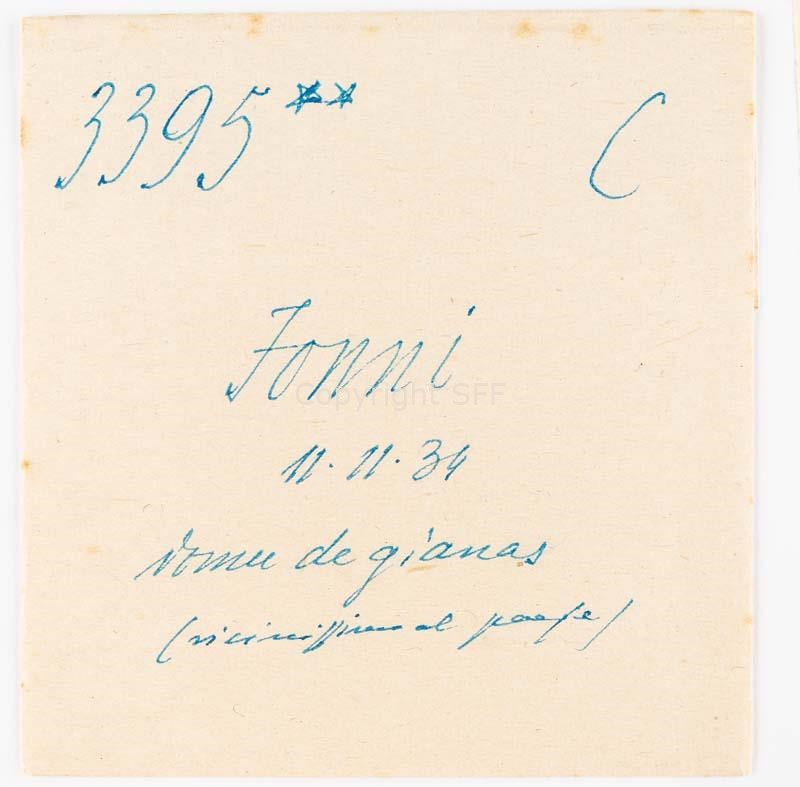 3395** C
Fonni
11.11.34
domu de gianas
(vicinissimo al paese)
Copyright SFF